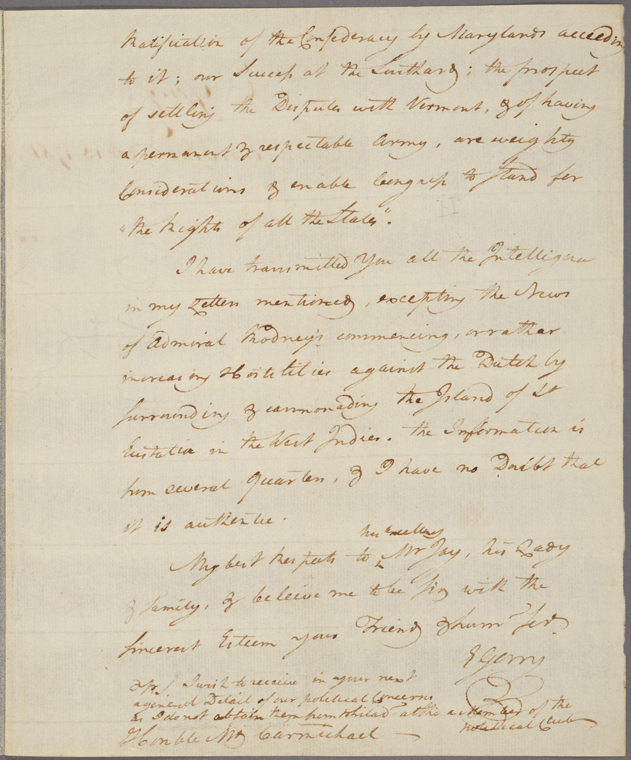 Ratification of the Confederacy by Marylands acceeding
to it; our Success at the Southard; the prospect
of settling the Disputes with Vermont, & of having
a permanent & respectable Army, are weighty
Considerations & enable Congress to stand for
"the Rights of all the States".
I have transmitted You all the Intelligence
in my Letters mentioned, excepting the News
of Admiral Rodney's commencing, or rather
increasing Hostilities against the Dutch by
surrounding & cannonading the Island of St
Eustatia in the West Indies. the Information is
from several Quarters, & I have no Doubt that
it is authentic.
My best Respects to his Excellency Mr Jay, his Lady
& family, & beleive me to be Sir with the
sincerest Esteem your Friend & hum Ser
E Gerry
I wish to receive in your next
a general Detail of our political Concerns
as I do not obtain them from Philad at the
a member of the
Political Club
Honble Mr Carmichael